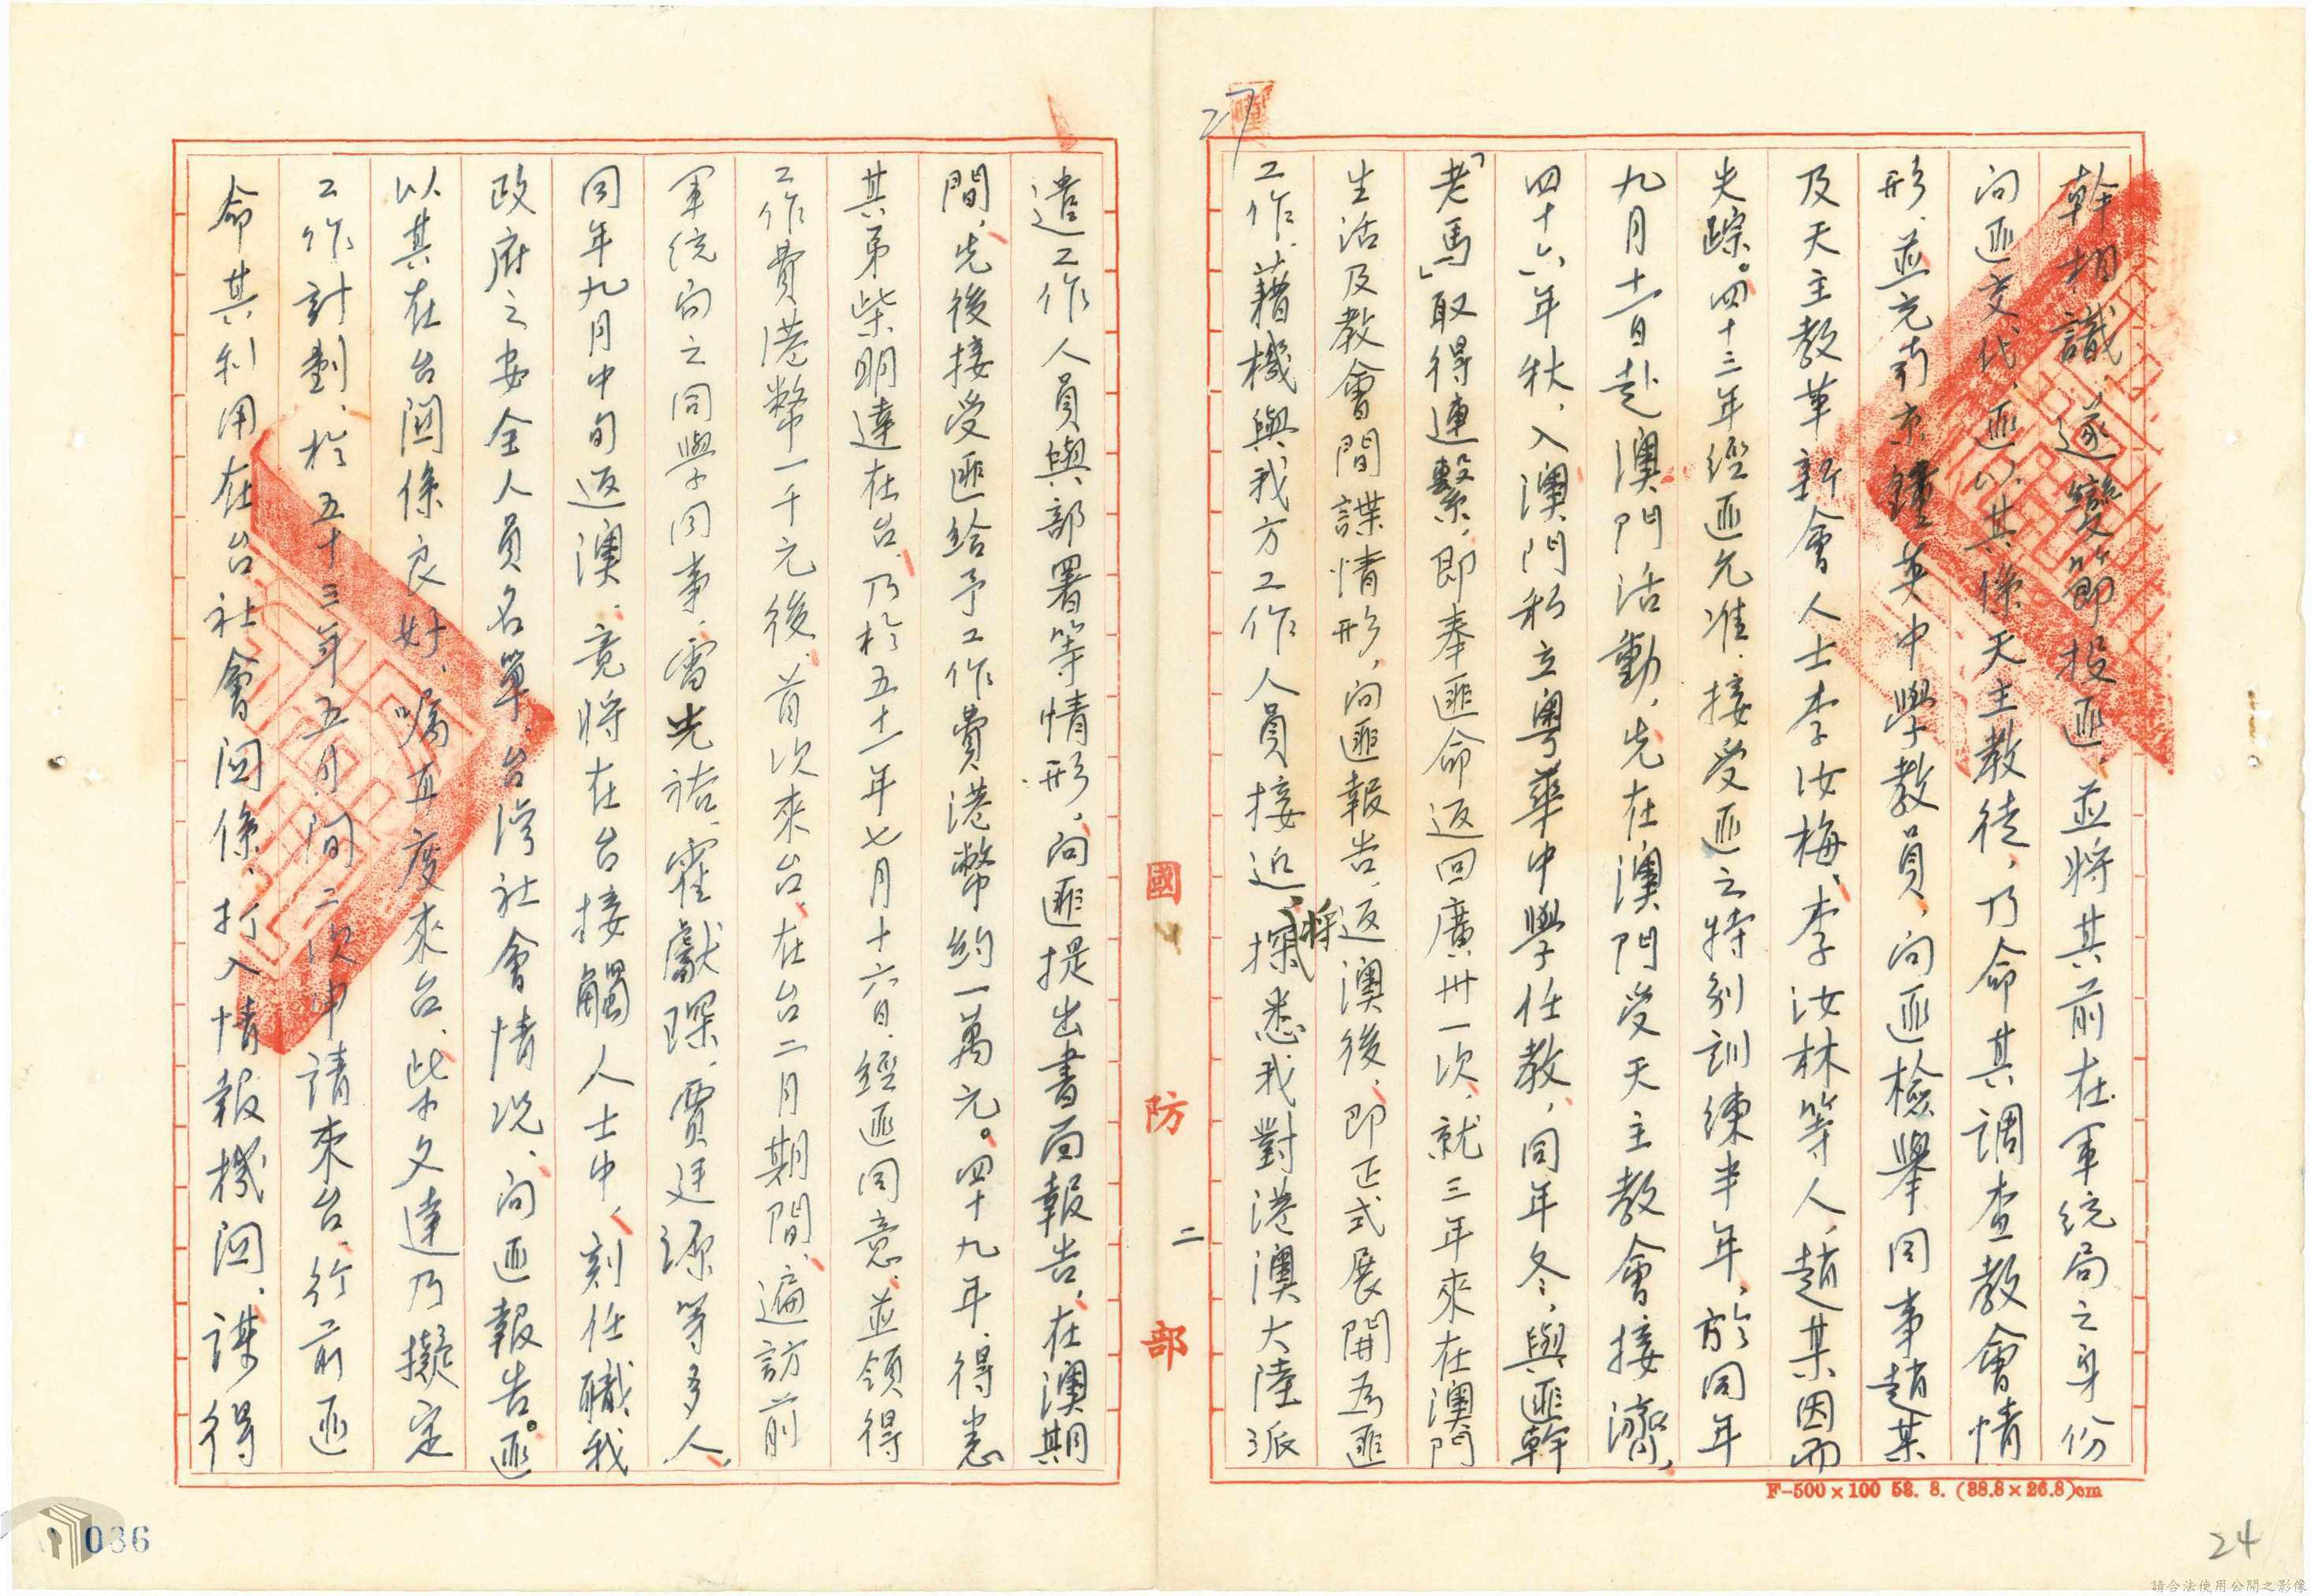 幹相識，遂變節投匪，並將其前在軍統局之身份
向匪交代，匪以其係天主教徒，乃命其調查教會情
形，並充南京鐘英中學教員，向匪檢舉同事趙某
及天主教革新會人士李汝梅、李汝林等人，趙某因而
失踪。四十三年經匪允准，接受匪之特別訓練半年，於同年
九月十一日赴澳門活動，先在澳門受天主教會接濟，
四十六年秋，入澳門私立粵華中學任教，同年冬，與匪幹
「老馬」取得連繫，即奉匪命返回廣州一次，就三年來在澳門
生活及教會間諜情形，向匪報告，返澳後，即正式展開為匪
工作，藉機與我方工作人員接近，將探悉我對港澳大陸派
遣工作人員與部署等情形，向匪提出書面報告，在澳期
間，先後接受匪給予工作費港幣約一萬元。四十九年，得悉
其弟柴明達在台，乃於五十一年七月十六日，經匪同意，並領得
工作費港幣一千元後，首次來台，在台二月期間，遍訪前
軍統局之同學同事，雷光祜、霍獻琛、賈廷源等多人，
同年九月中旬返澳，竟將在台接觸人士中，刻任職我
政府之安全人員名單，台灣社會情況，向匪報告。匪
以其在台關係良好，囑再度來台，柴文達乃擬定
工作計劃，於五十三年五月間二次申請來台，行前匪
命其利用在台社會關係，打入情報機關，謀得
國防部
二
F-500×100 53. 8. (38.8×26.8)cm
27
24
036
請合法使用公開之影像